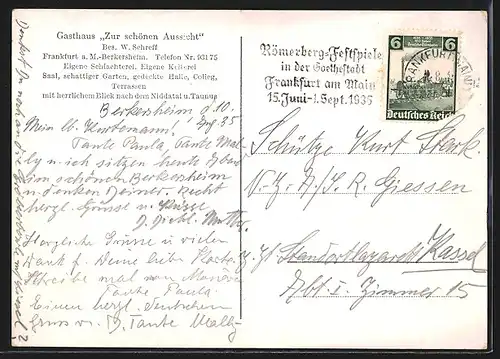 Gasthaus „Zur schönen Aussicht“
Bes. W. Schreff
Frankfurt a. M.-Berkersheim. Telefon Nr. 93175
Eigene Schlachterei. Eigene Kelterei
Saal, schattiger Garten, gedeckte Halle, Colleg,
Terrassen
mit herrlichem Blick nach dem Niddatal u. Taunus
Berkersheim d. 10.
35
Mein lb. Kurtemann!
Tante Paula, Tante Mal-
ly u. ich sitzen heute
im schönen Berkersheim
u. denken Deiner. Recht
herzl. Grüsse u. Küsse
D. Mutti.
Herzliche Grüsse u. vielen
Dank f. Deine liebe Karte.
Schreibe mal vom Manöver
Tante Paula.
Einen herzl. deutschen
Gruss v. D. Tante Mally
Römerberg-Festspiele
in der Goethestadt
Frankfurt am Main
15. Juni-1. Sept. 1935
FRANKFURT (MAIN)
6 6
Deutsches Reich
Schütze Kurt Stark.
N.Z. A/J.R. Giessen
z. Zt. Standortlazarett Kassel
Abt. I. Zimmer 15